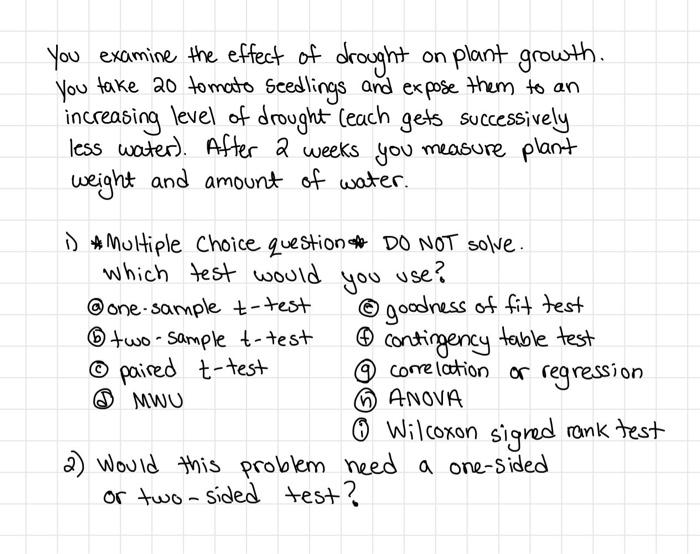 You examine the effect of drought on plant growth.
You take 20 tomato seedlings and expose them to an
increasing level of drought (each gets successively
less water). After 2 weeks you measure plant
weight and amount of water.
1) *Multiple Choice question* DO NOT solve.
Which test would you use?
ⓐ one-sample t-test
ⓑ two-sample t-test
ⓒ paired t-test
ⓓ MWU
ⓔ goodness of fit test
ⓕ contingency table test
ⓖ correlation or regression
ⓗ ANOVA
ⓘ Wilcoxon signed rank test
2) Would this problem need a one-sided
or two-sided test?